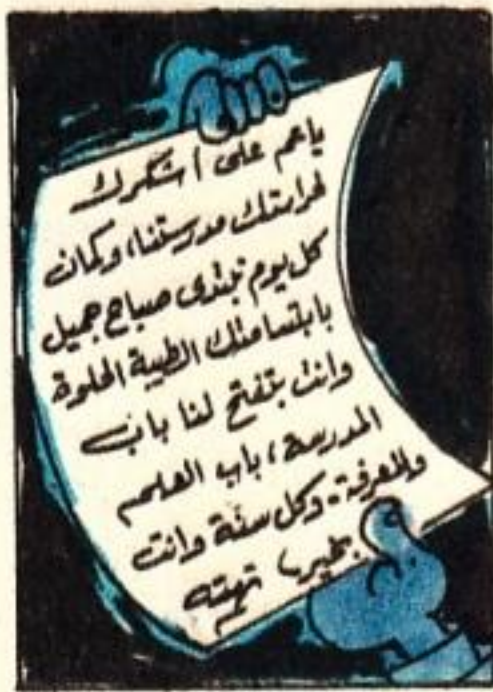 ياعم على أشكرك
لحراستك مدرستنا، وكمان
كل يوم تبتدى صباح جميل
بابتسامتك الطيبة الحلوة
وانت بتفتح لنا باب
المدرسة، باب العلم
والمعرفة.. وكل سنة وانت
بخير يا